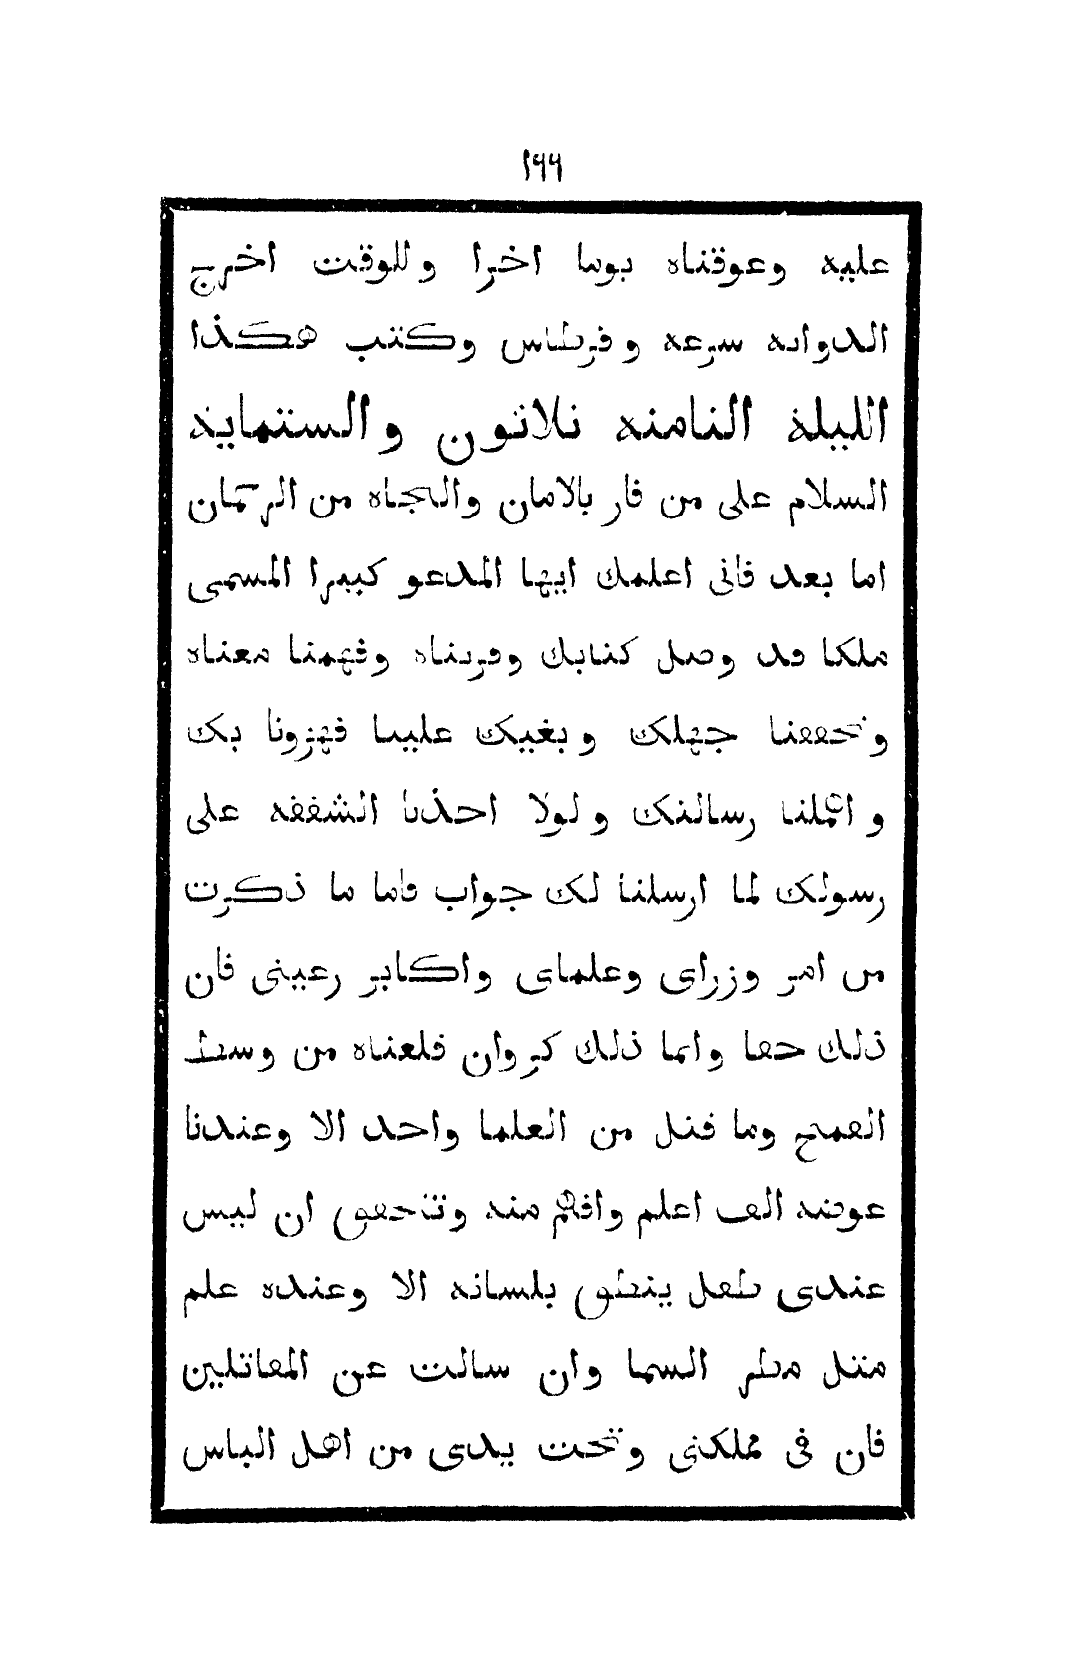 ١٦٦
عليه وعوقناه يوما اخرا وللوقت اخرج
الدواه سرعه وقرطاس وكتب هكذا
الليلة الثامنه ثلاثون والستمايه
السلام على من فار بالامان والنجاه من الرحمان
اما بعد فانى اعلمك ايها المدعو كبيرا المسمى
ملكا قد وصل كتابك وقريناه وفهمنا معناه
وتحققنا جهلك وبغيك علينا فهزونا بك
واثملنا رسالتك ولولا احذنا الشفقه على
رسولك لما ارسلنا لك جواب فاما ما ذكرت
من امر وزراى وعلماى واكابر رعيتى فان
ذلك حقا وانما ذلك كروان قلعناه من وسط
القمح وما قتل من العلما واحد الا وعندنا
عوضه الف اعلم وافهم منه وتتحقق ان ليس
عندى طفل ينطق بلسانه الا وعنده علم
مثل مطر السما وان سالت عن المقاتلين
فان فى مملكتى وتحت يدى من اهل الباس